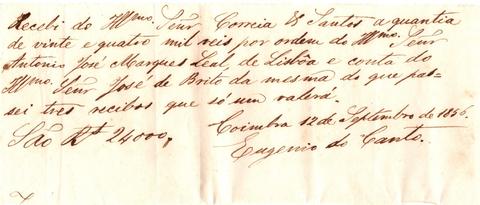 Recebi do Illmo. Senr. Correia & Santos a quantia
de vinte e quatro mil reis por ordem do Illmo. Senr
Antonio José Marques Leal, de Lisbôa e conta do
Illmo. Senr José de Brito da mesma do que pas-
sei tres recibos que só um valerá.
Coimbra 12 de Septembro de 1856.
São Rs 24000,
Eugenio do Canto.